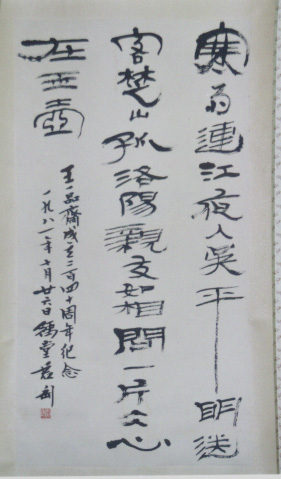 寒雨連江夜入吳平明送
客楚山孤洛陽親友如相問一片仌心
在玉壺
王一品齋成立二百四十周年紀念
一九八一年十月廿六日